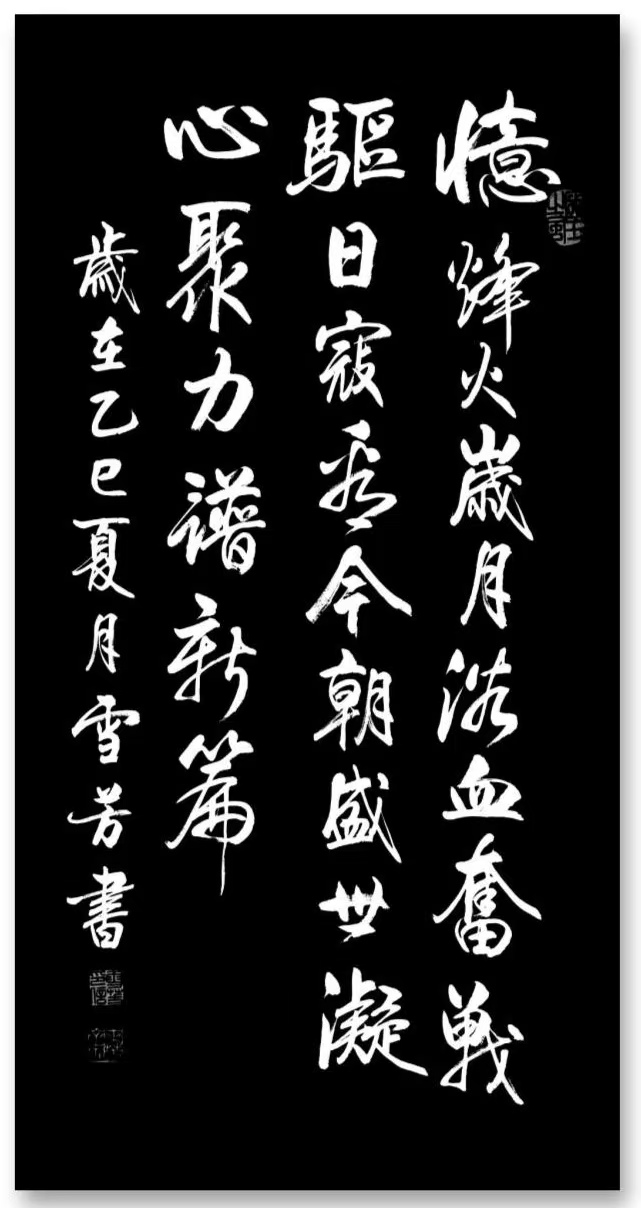 憶烽火歲月浴血奮戰
驅日寇看今朝盛世凝
心聚力譜新篇
歲在乙巳夏月雪芳書